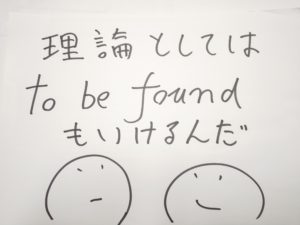 理論としては
to be found
もいけるんだ